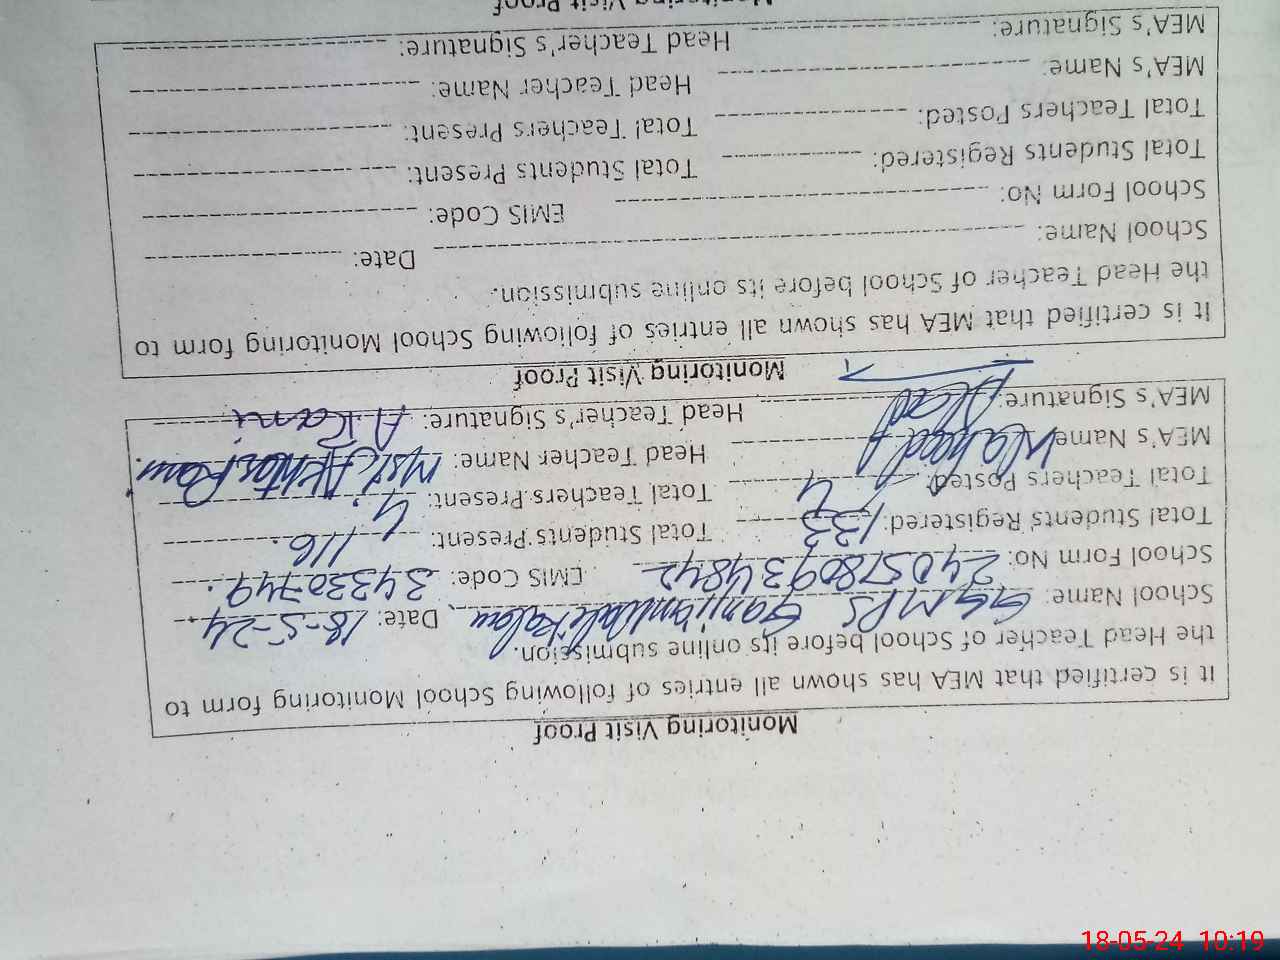 Monitoring Visit Proof
It is certified that MEA has shown all entries of following School Monitoring form to
the Head Teacher of School before its online submission.
School Name: GGMPS Date: 18-5-24
School Form No: 2405780934842 EMIS Code: 34330749
Total Students Registered: 133 Total Students Present: 116
Total Teachers Posted: 4 Total Teachers Present: 4
MEA's Name Head Teacher Name: Mst. Akhtar Rani
MEA's Signature: Head Teacher's Signature: A Rani
Monitoring Visit Proof
It is certified that MEA has shown all entries of following School Monitoring form to
the Head Teacher of School before its online submission.
School Name: Date:
School Form No: EMIS Code:
Total Students Registered: Total Students Present:
Total Teachers Posted: Total Teachers Present:
MEA's Name: Head Teacher Name:
MEA's Signature: Head Teacher's Signature:
Monitoring Visit Proof
18-05-24 10:19